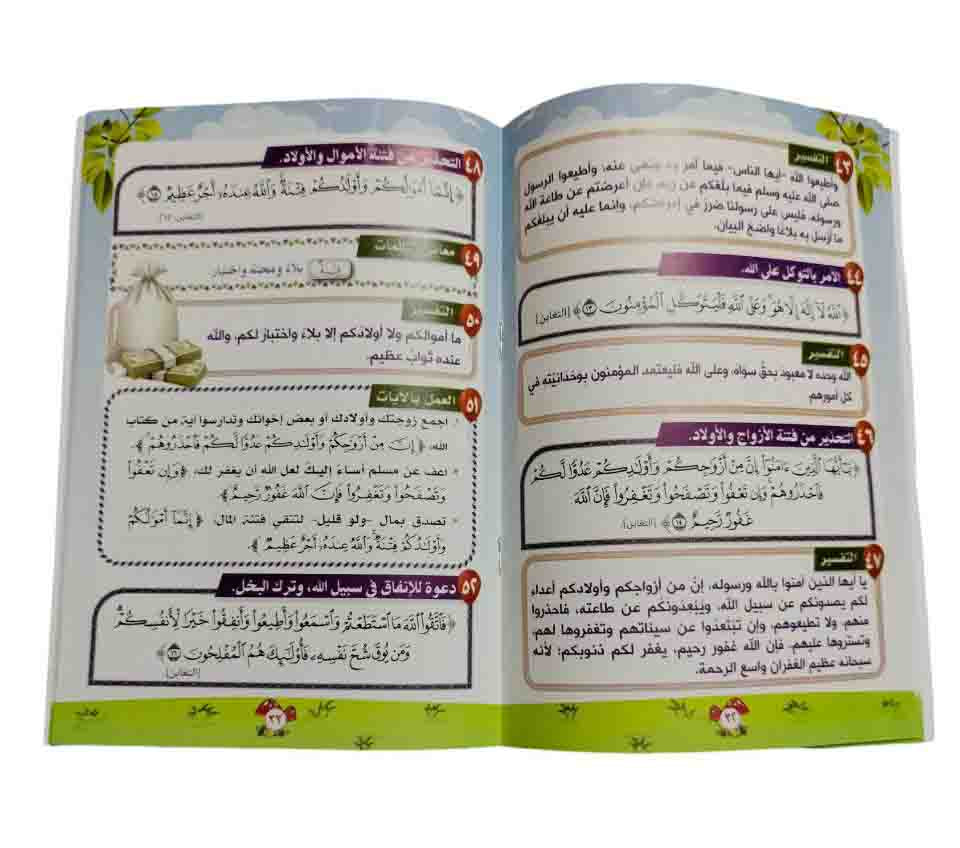 ٤٣ التفسير
وأطيعوا الله "أيها الناس" فيما أمر به ونهى عنه، وأطيعوا الرسول
صلى الله عليه وسلم فيما بلَّغكم عن ربه، فإن أعرضتم عن طاعة الله
ورسوله، فليس على رسولنا ضررٌ في إعراضكم، وإنما عليه أن يبلغكم
ما أرسل به بلاغًا واضح البيان.
٤٤ الأمر بالتوكل على الله.
﴿اللَّهُ لَا إِلَٰهَ إِلَّا هُوَ وَعَلَى اللَّهِ فَلْيَتَوَكَّلِ الْمُؤْمِنُونَ ١٣﴾ [التغابن]
٤٥ التفسير
الله وحده لا معبود بحقٍّ سواه، وعلى الله فليعتمد المؤمنون بوحدانيَّته في
كل أمورهم.
٤٦ التحذير من فتنة الأزواج والأولاد.
﴿يَا أَيُّهَا الَّذِينَ ءَامَنُوا إِنَّ مِنْ أَزْوَاجِكُمْ وَأَوْلَادِكُمْ عَدُوًّا لَّكُمْ
فَاحْذَرُوهُمْ وَإِن تَعْفُوا وَتَصْفَحُوا وَتَغْفِرُوا فَإِنَّ اللَّهَ
غَفُورٌ رَّحِيمٌ ١٤﴾ [التغابن]
٤٧ التفسير
يا أيها الذين آمنوا بالله ورسوله، إنَّ من أزواجكم وأولادكم أعداء
لكم يصدونكم عن سبيل الله، ويُبَعِّدونكم عن طاعته، فاحذروا
منهم، ولا تطيعوهم، وإن تبتعدوا عن سيئاتهم وتغفروها لهم،
وتستروها عليهم، فإن الله غفور رحيم، يغفر لكم ذنوبكم؛ لأنه
سبحانه عظيم الغفران واسع الرحمة.
٣٢
٤٨ التحذير من فتنة الأموال والأولاد.
﴿إِنَّمَا أَمْوَالُكُمْ وَأَوْلَادُكُمْ فِتْنَةٌ وَاللَّهُ عِندَهُ أَجْرٌ عَظِيمٌ ١٥﴾
٤٩ معاني الكلمات
فِتْنَةٌ بلاء ومحنة واختبار
٥٠ التفسير
ما أموالكم ولا أولادكم إلا بلاء واختبار لكم، والله
عنده ثواب عظيم.
٥١ العمل بالآيات
١. اجمع زوجتك وأولادك أو بعض إخوانك وتدارسوا آية من كتاب
الله، ﴿إِنَّ مِنْ أَزْوَاجِكُمْ وَأَوْلَادِكُمْ عَدُوًّا لَّكُمْ فَاحْذَرُوهُمْ﴾.
٢. اعف عن مسلم أساء إليك لعل الله أن يغفر لك، ﴿وَإِن تَعْفُوا
وَتَصْفَحُوا وَتَغْفِرُوا فَإِنَّ اللَّهَ غَفُورٌ رَّحِيمٌ﴾.
٣. تصدق بمال -ولو قليل- لتتقي فتنة المال، ﴿إِنَّمَا أَمْوَالُكُمْ
وَأَوْلَادُكُمْ فِتْنَةٌ وَاللَّهُ عِندَهُ أَجْرٌ عَظِيمٌ﴾.
٥٢ دعوة للإنفاق في سبيل الله، وترك البخل.
﴿فَاتَّقُوا اللَّهَ مَا اسْتَطَعْتُمْ وَاسْمَعُوا وَأَطِيعُوا وَأَنفِقُوا خَيْرًا لِّأَنفُسِكُمْ
وَمَن يُوقَ شُحَّ نَفْسِهِ فَأُولَٰئِكَ هُمُ الْمُفْلِحُونَ ١٦﴾
[التغابن]
٣٣